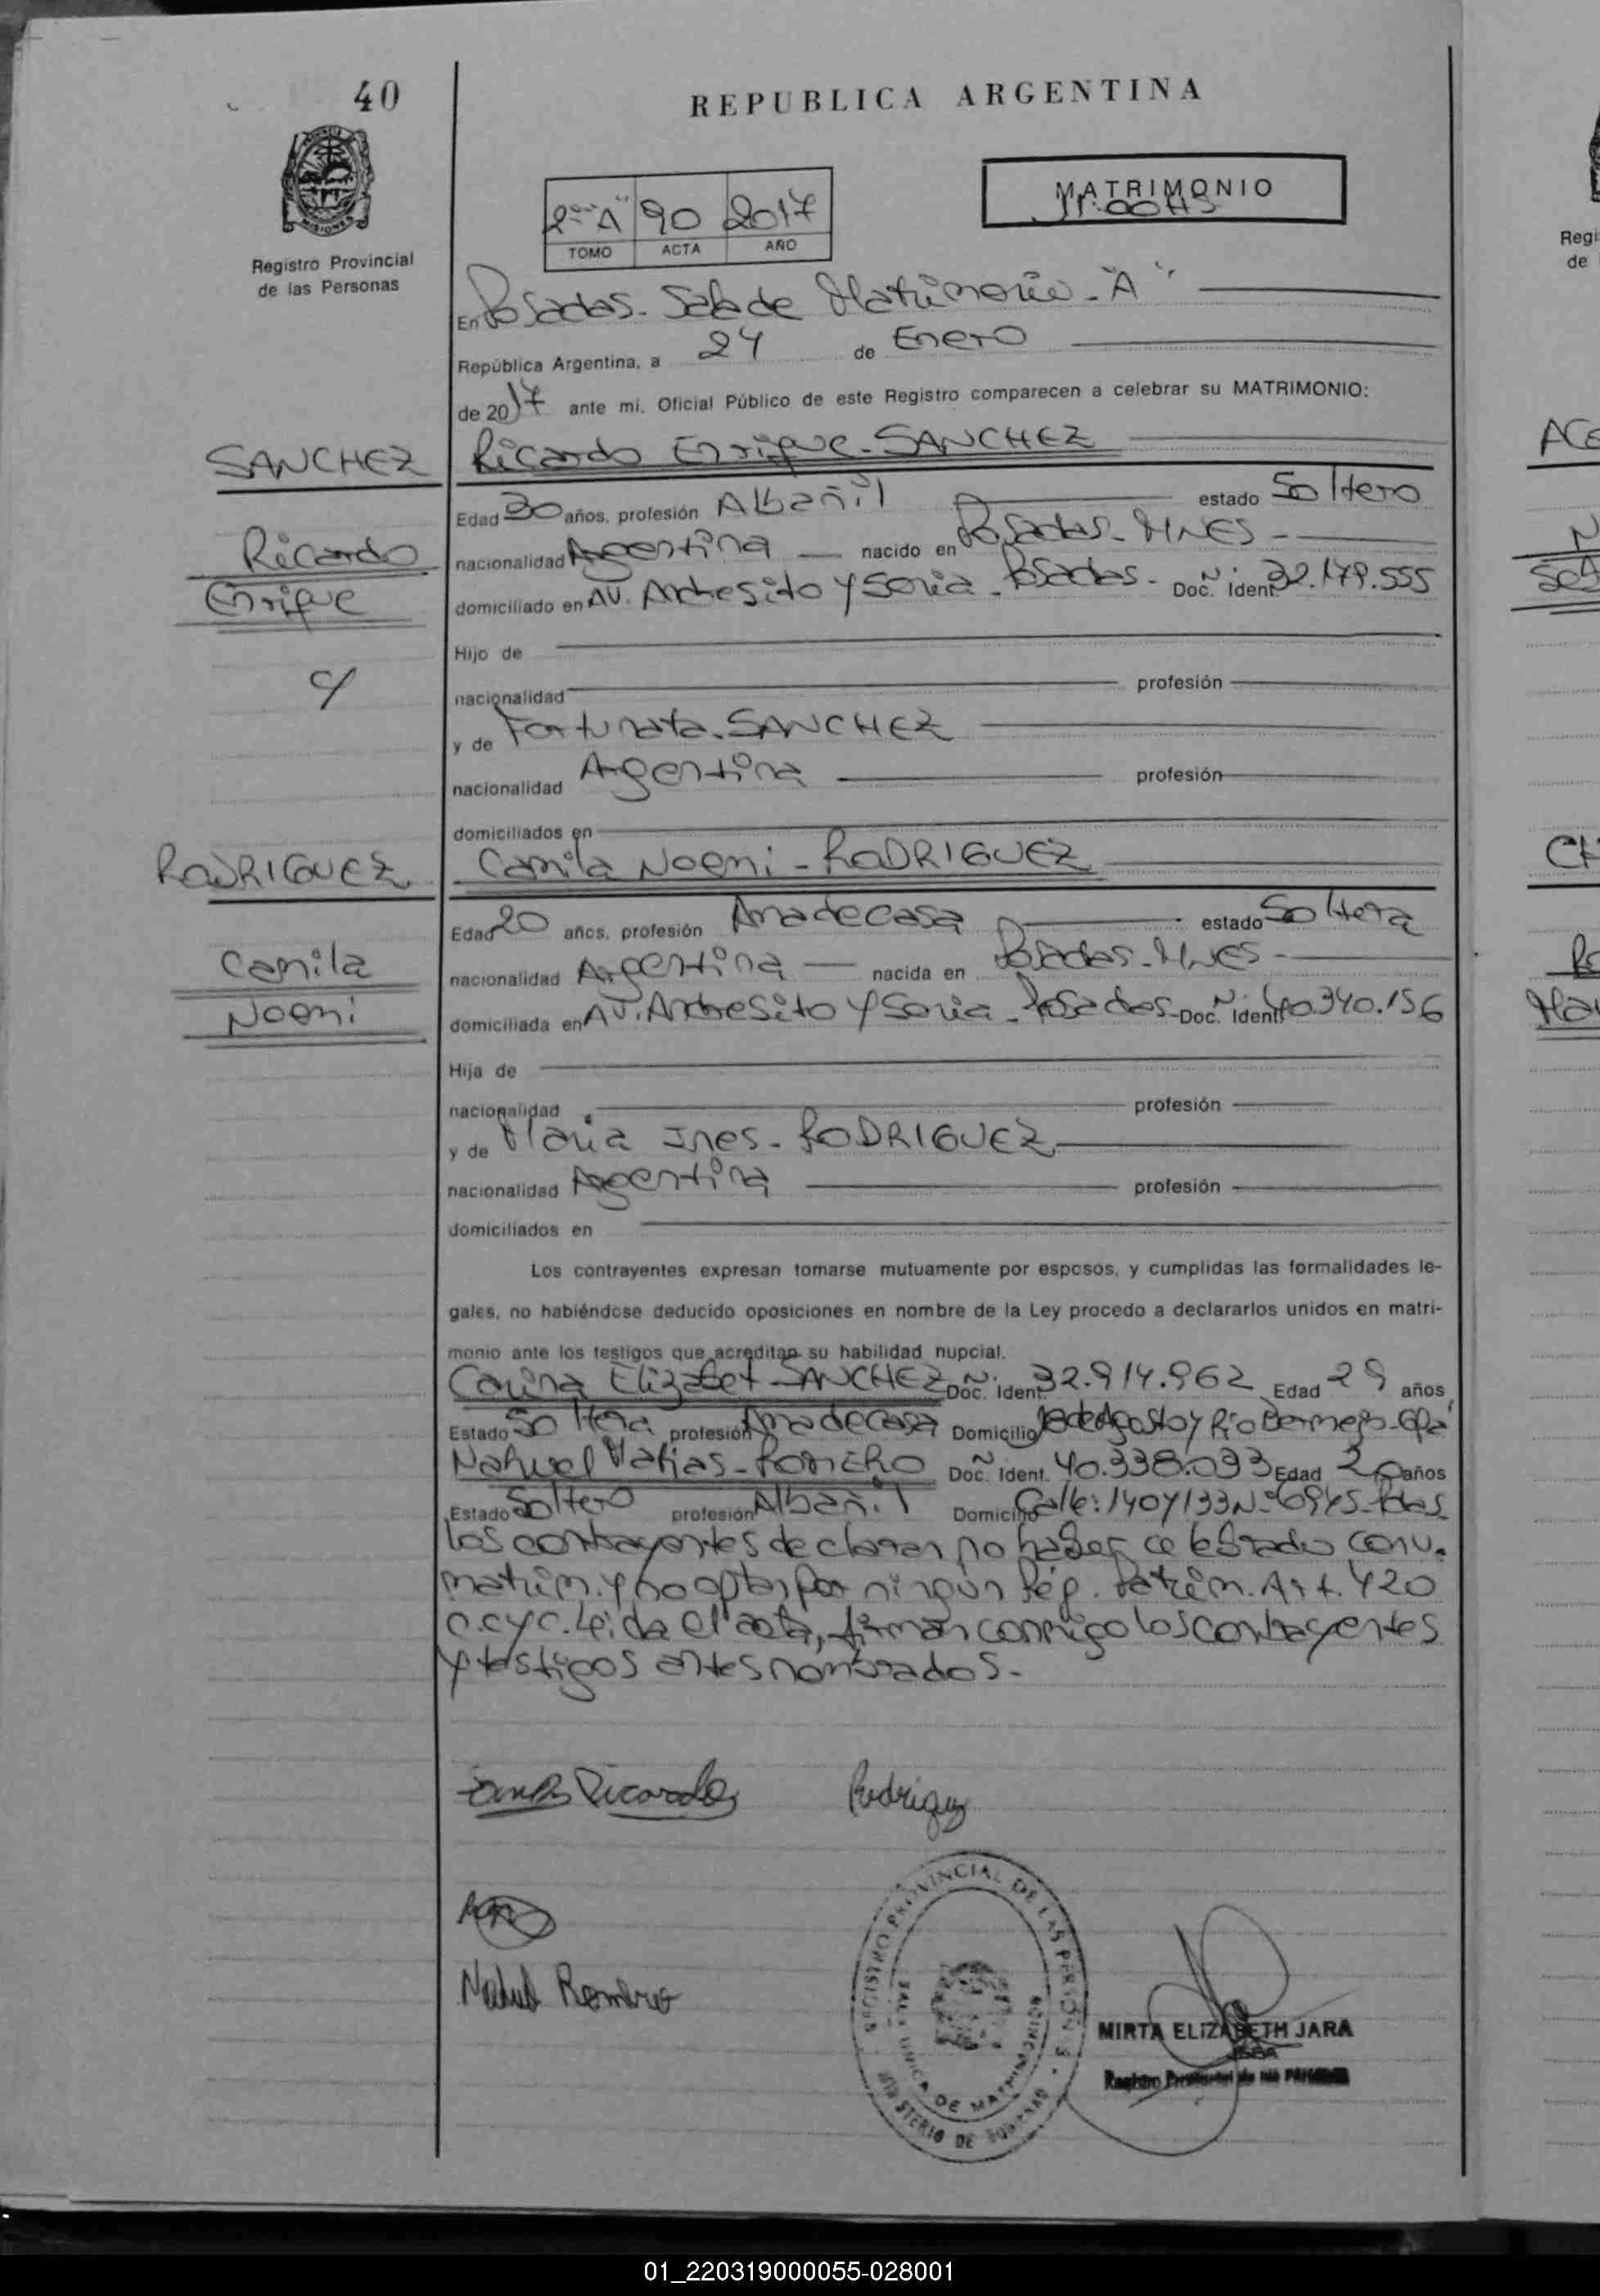 40
REPUBLICA ARGENTINA
MATRIMONIO
11:00 HS
2do "A" 90 2017
TOMO ACTA AÑO
Registro Provincial
de las Personas
En Posadas. Sala de Matrimonio - "A"
República Argentina, a 24 de Enero
de 2017 ante mí, Oficial Público de este Registro comparecen a celebrar su MATRIMONIO:
SANCHEZ
Ricardo Enrique - SANCHEZ
Edad 30 años, profesión Albañil estado Soltero
Ricardo
nacionalidad Argentina nacido en Posadas - MNES -
Enrique
domiciliado en AV. Andresito y Soria - Posadas - Doc. Ident. N° 32.179.555
Hijo de
c/
nacionalidad profesión
y de Fortunata. SANCHEZ
nacionalidad Argentina profesión
domiciliados en
RODRIGUEZ
Camila Noemi - RODRIGUEZ
Edad 20 años, profesión Ama de casa estado Soltera
Camila
nacionalidad Argentina nacida en Posadas - MNES -
Noemi
domiciliada en AV. Andresito y Soria - Posados - Doc. Ident. N° 40.340.156
Hija de
nacionalidad profesión
y de Maria Ines - RODRIGUEZ
nacionalidad Argentina profesión
domiciliados en
Los contrayentes expresan tomarse mutuamente por esposos, y cumplidas las formalidades le-
gales, no habiéndose deducido oposiciones en nombre de la Ley procedo a declararlos unidos en matri-
monio ante los testigos que acreditan su habilidad nupcial.
Corina Elizabet SANCHEZ Doc. Ident. N° 32.914.962 Edad 29 años
Estado Soltera profesión Ama de casa Domicilio de Agosto y Rio Bermejo - Gpá
Nahuel Matias - ROMERO Doc. Ident. N° 40.338.093 Edad 20 años
Estado Soltero profesión Albañil Domicilio Calle: 140 y 133 N° 6945 - Pdas
los contrayentes declaran no haber celebrado conv.
matrim. y no optar por ningún Rég. Patrim. Art. 420
C.C y C. Leida el acta, firman conmigo los contrayentes
y testigos antes nombrados -
Ricardo Rodriguez
Nahuel Romero
REGISTRO PROVINCIAL DE LAS PERSONAS
MINISTERIO DE GOBIERNO
SALA UNICA DE MATRIMONIOS
MIRTA ELIZABETH JARA
Registro Provincial de las Personas
ACE
CH
Regi
de
01_220319000055-028001